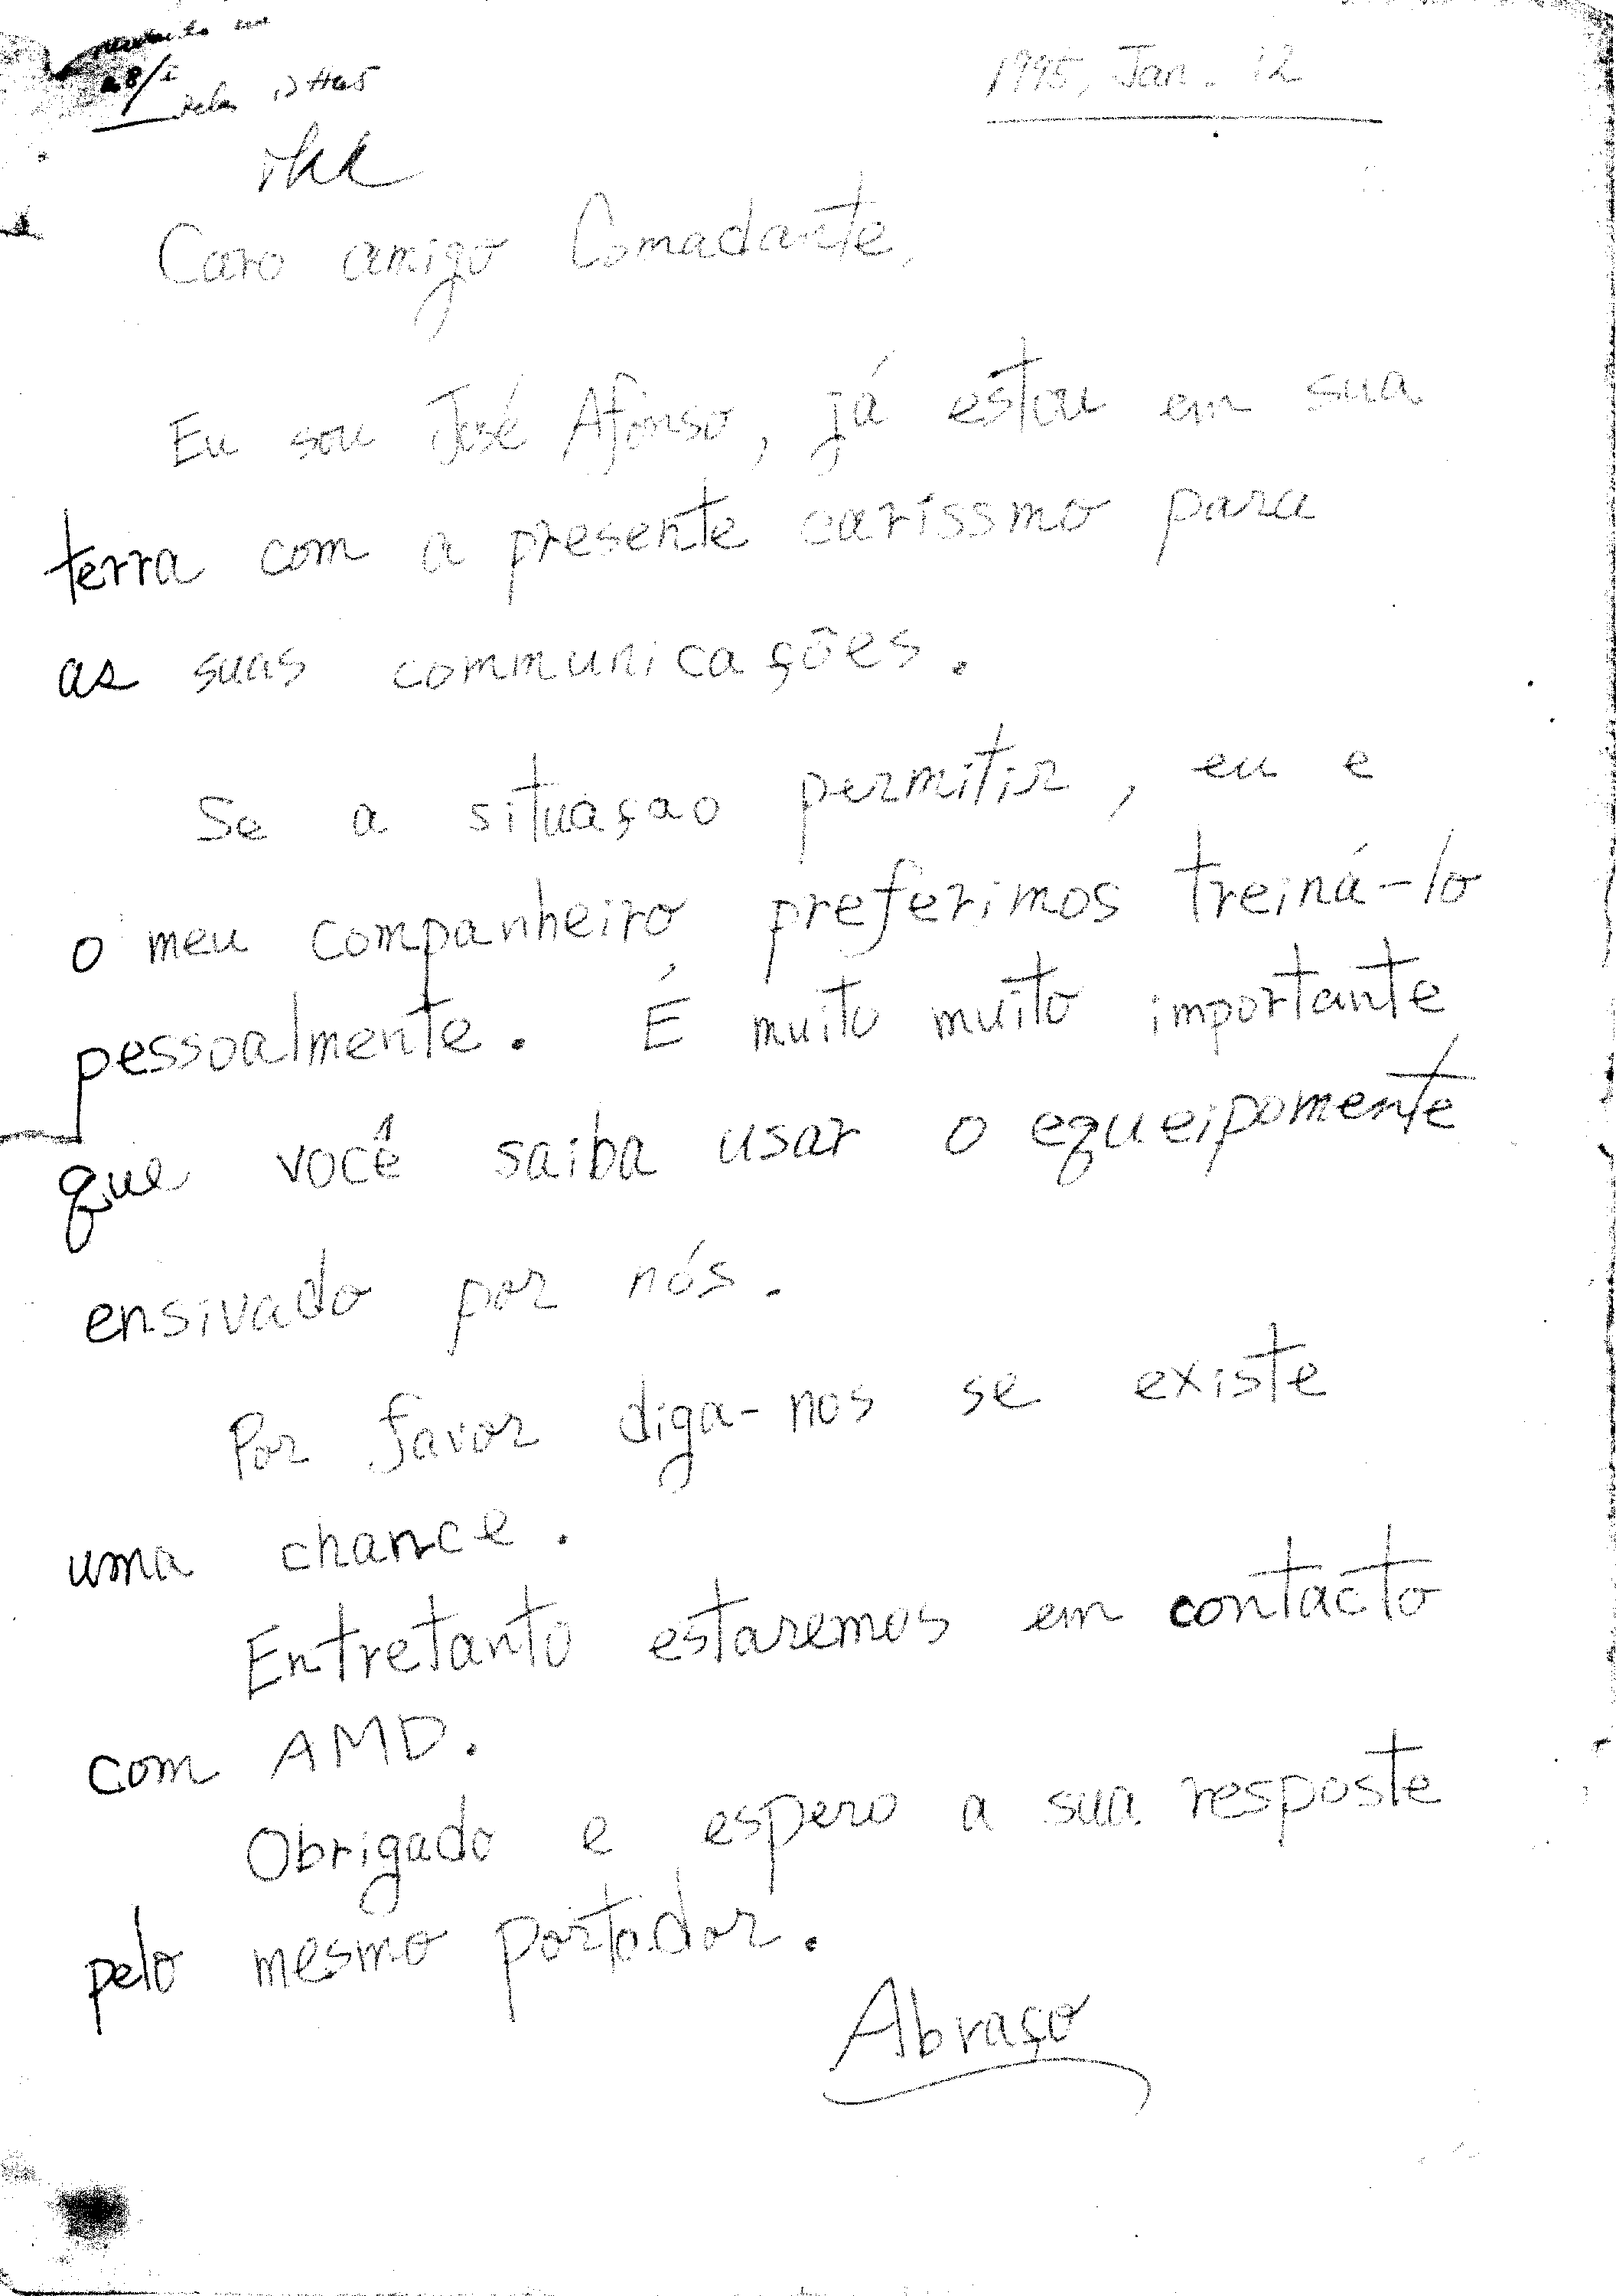 28/1
1995, Jan. 12
Caro amigo Comadante,
Eu sou José Afonso, já estou em sua
terra com a presente caríssmo para
as suas communicações.
Se a situaçao permitir, eu e
o meu companheiro preferimos treiná-lo
pessoalmente. É muito muito importante
que você saiba usar o equeipomente
ensivado por nós.
Por favor diga-nos se existe
uma chance.
Entretanto estaremos em contacto
com AMD.
Obrigado e espero a sua resposte
pelo mesmo portador.
Abraço